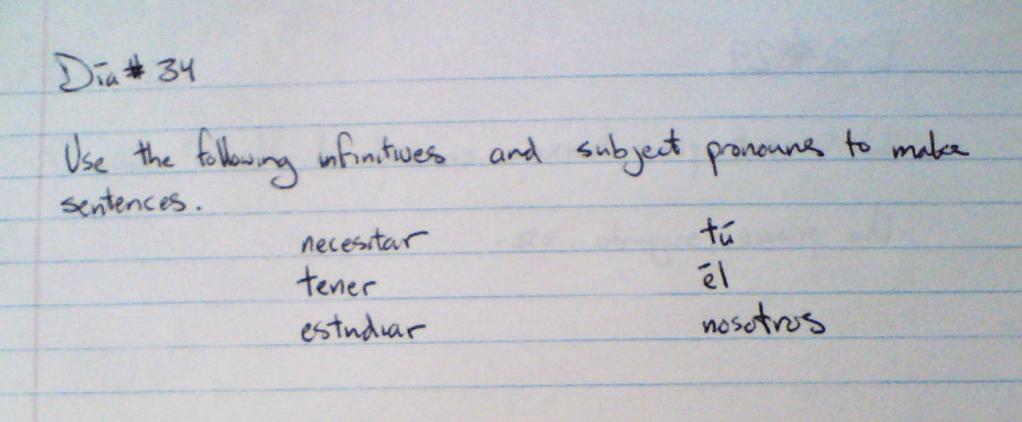 Día # 34
Use the following infinitives and subject pronouns to make
sentences.
necesitar tú
tener él
estudiar nosotros